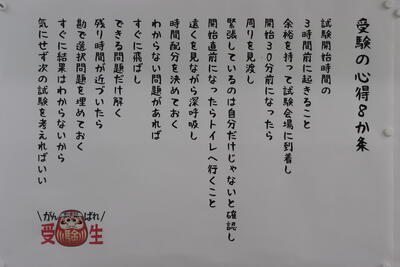 受験の心得8か条
試験開始時間の
3時間前に起きること
余裕を持って試験会場に到着し
開始30分前になったら
周りを見渡し
緊張しているのは自分だけじゃないと確認し
開始直前になったらトイレへ行くこと
遠くを見ながら深呼吸し
時間配分を決めておく
わからない問題があれば
すぐに飛ばし
できる問題だけ解く
残り時間が近づいたら
勘で選択問題を埋めておく
すぐに結果はわからないから
気にせず次の試験を考えればいい
がんばれ
受験生